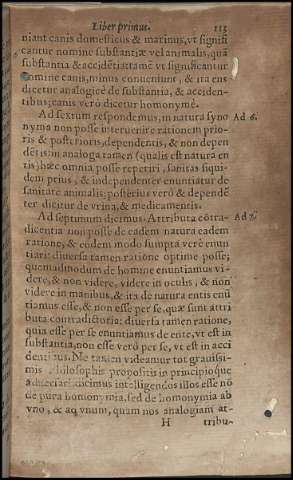 Liber primus. 113
niant canis domesticus & marinus, vt signifi
cantur nomine substantiæ vel animalis, quã
substantia & accidẽs, attamẽ vt significantur
nomine canis, minus conueniunt, & ita ens
dicetur analogicè de substantia, & acciden-
tibus; canis verò dicetur homonymè.
Ad sextum respondemus, in natura syno Ad 6.
nyma non posse interuenire rationem prio-
ris & posterioris, dependentis, & non depen
dẽtis: in analoga tamen (qualis est natura en
tis) hæc omnia posse reperiri, sanitas siqui-
dem prius, & independenter enuntiatur de
sanitate animalis; posterius verò & dependẽ
ter dicitur de vrina, & medicamentis.
Ad septimum dicimus. Attributa cõtra- Ad 7.
dicentia non posse de eadem natura eadem
ratione, & eodem modo sumpta verè enun
tiari: diuersa tamen ratione optime posse;
quemadmodum de homine enuntiamus vi-
dere, & non videre, videre in oculis, & non
videre in manibus, & ita de natura entis enũ
tiamus esse, & non esse per se, quæ sunt attri
buta contradictoria: diuersa tamen ratione,
quia esse per se enuntiamus de ente, vt est in
substantia, non esse verò per se, vt est in acci
dentibus. Ne tamen videamur tot grauissi-
mis Philosophis propositis in principio quæ
aduersari, dicimus intelligendos illos esse nõ
de pura homonymia, sed de homonymia ab
vno, & ad vnum, quam nos analogiam at-
H tribu-